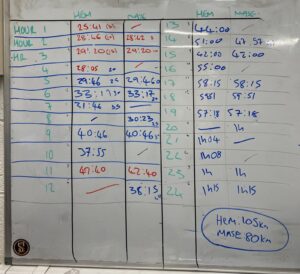 HEM MASE
HOUR 1 25:41
HOUR 2 28:46 28:42
HR 3 29:20 29:20
4 28:05
5 29:46 29:46
6 33:17 33:17
7 31:46
8 30:23
9 40:46 40:46
10 37:55
11 42:40 42:40
12 38:15
HEM MASE
13 44:00
14 51:00
15 42:00 42:00
16 55:00
17 58:15 58:15
18 58:51 58:51
19 57:18 57:18
20 1h
21 1h04
22 1h08
23 1h 1h
24 1h15 1h15
HEM: 105km
MASE 80km